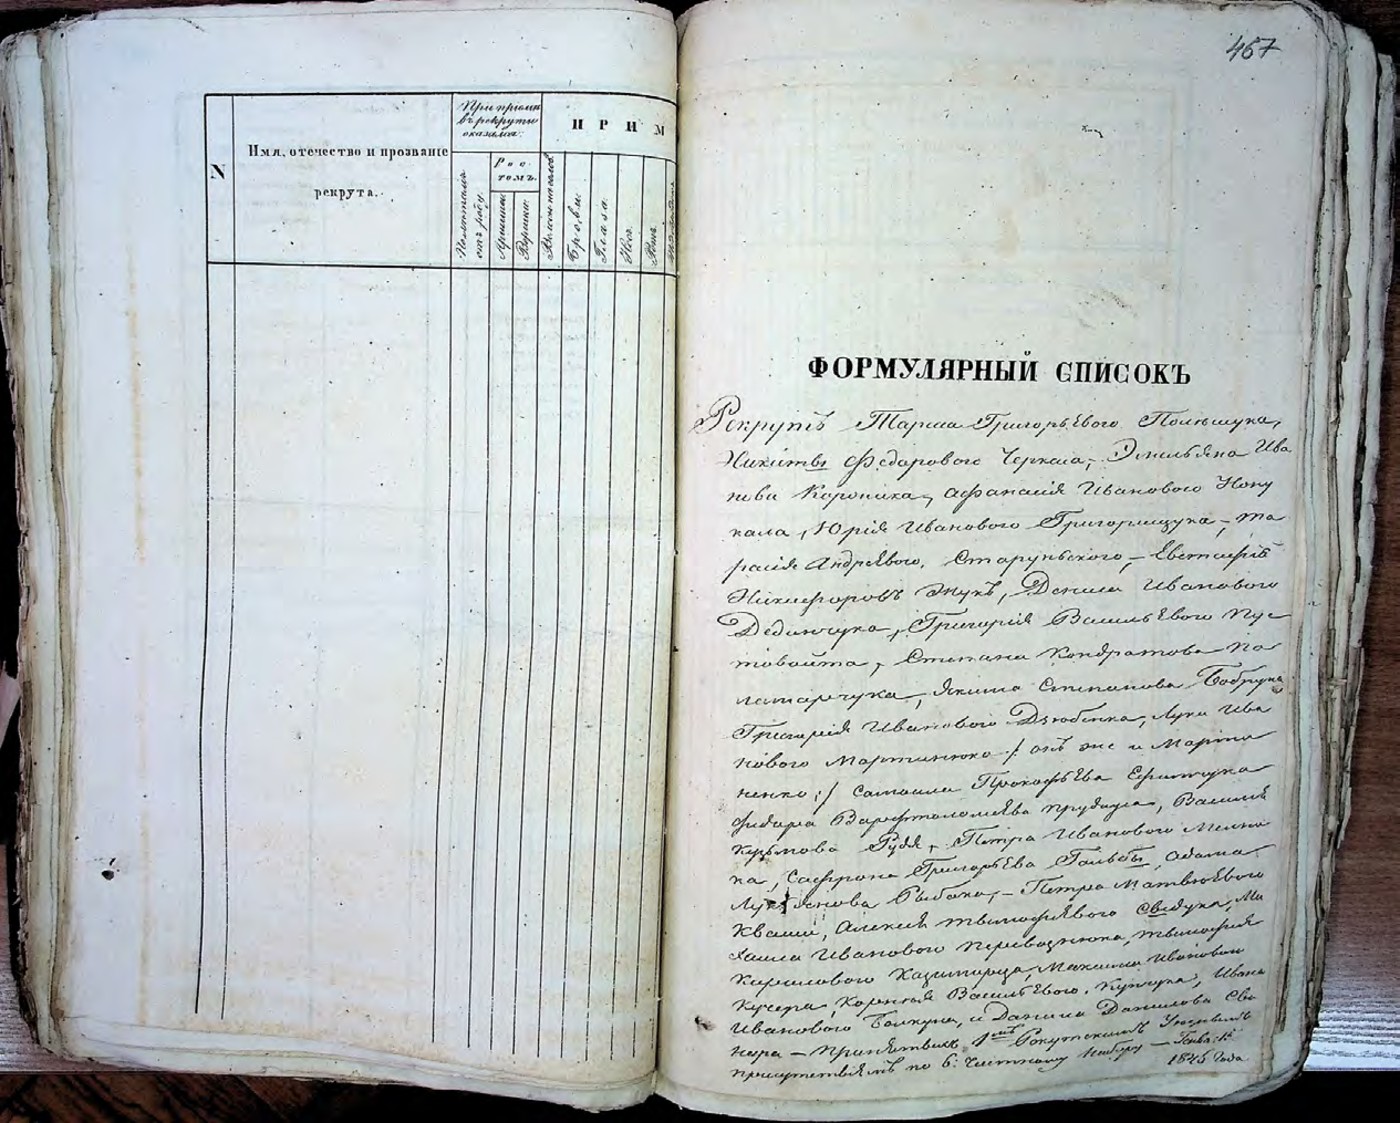 N
Имя, отечество и прозваніе
рекрута.
При пріемѣ
въ рекруты
оказался:
ПРИМ
Рос-
томъ.
Помѣтамъ
отъ роду
Аршины
Вершки
Брови
Глаза
Носъ
Ротъ
467
ФОРМУЛЯРНЫЙ СПИСОКЪ
Рекрутъ Тараса Григорьевого Полищука,
Никиты Федорового Черкаса, Эмильяна Ива
нова Короника, Афанасія Иванового Коку
кала, Юрія Иванового Григорищука, – Та
расія Андреевого, Старульского, – Евстафій
Никифоровъ Жукъ, Дениса Иванового
Дединчука, Григорія Васильевого Пус
товойта, Степана Кондратова По
ламарчука, Якима Степанова Бобрука
Григорія Иванового Дзюбенка, Луки Ива
нового Мартинюка /: онъ же и Марты
ненко :/ Самоила Прокофьева Ефимчука
Федора Варфоломеева Прудиуса, Василія
Кузьмова Рудя, – Петра Иванового Мельни
ка, Сафрона Григорьева Гальбы, Адама
Лукьянова Рыбака, – Петра Матвѣевого
Кваши, Алексея Тимофѣевого Свидука, Ми
хаила Иванового Перевознюка, Тимофея
Кирилового Казимирца, Максима Иванового
Кучера, Корнея Васильевого Купчука, Ивана
Иванового Болкуна, и Данила Данилова Сво
нара – принятыхъ 1мъ Рекрутскимъ Уезднымъ
присутствіемъ по 6. частному набору – Генва: 15
1845 года